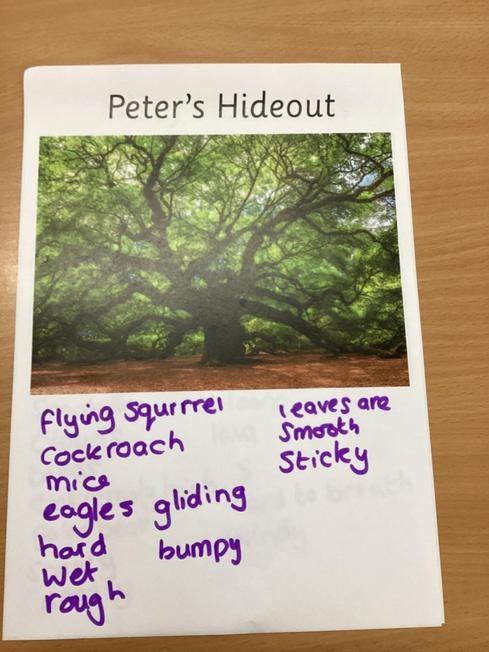 Peter's Hideout
flying squrrel
cockroach
mice
eagles gliding
hard bumpy
wet
rough
leaves are
smooth
sticky